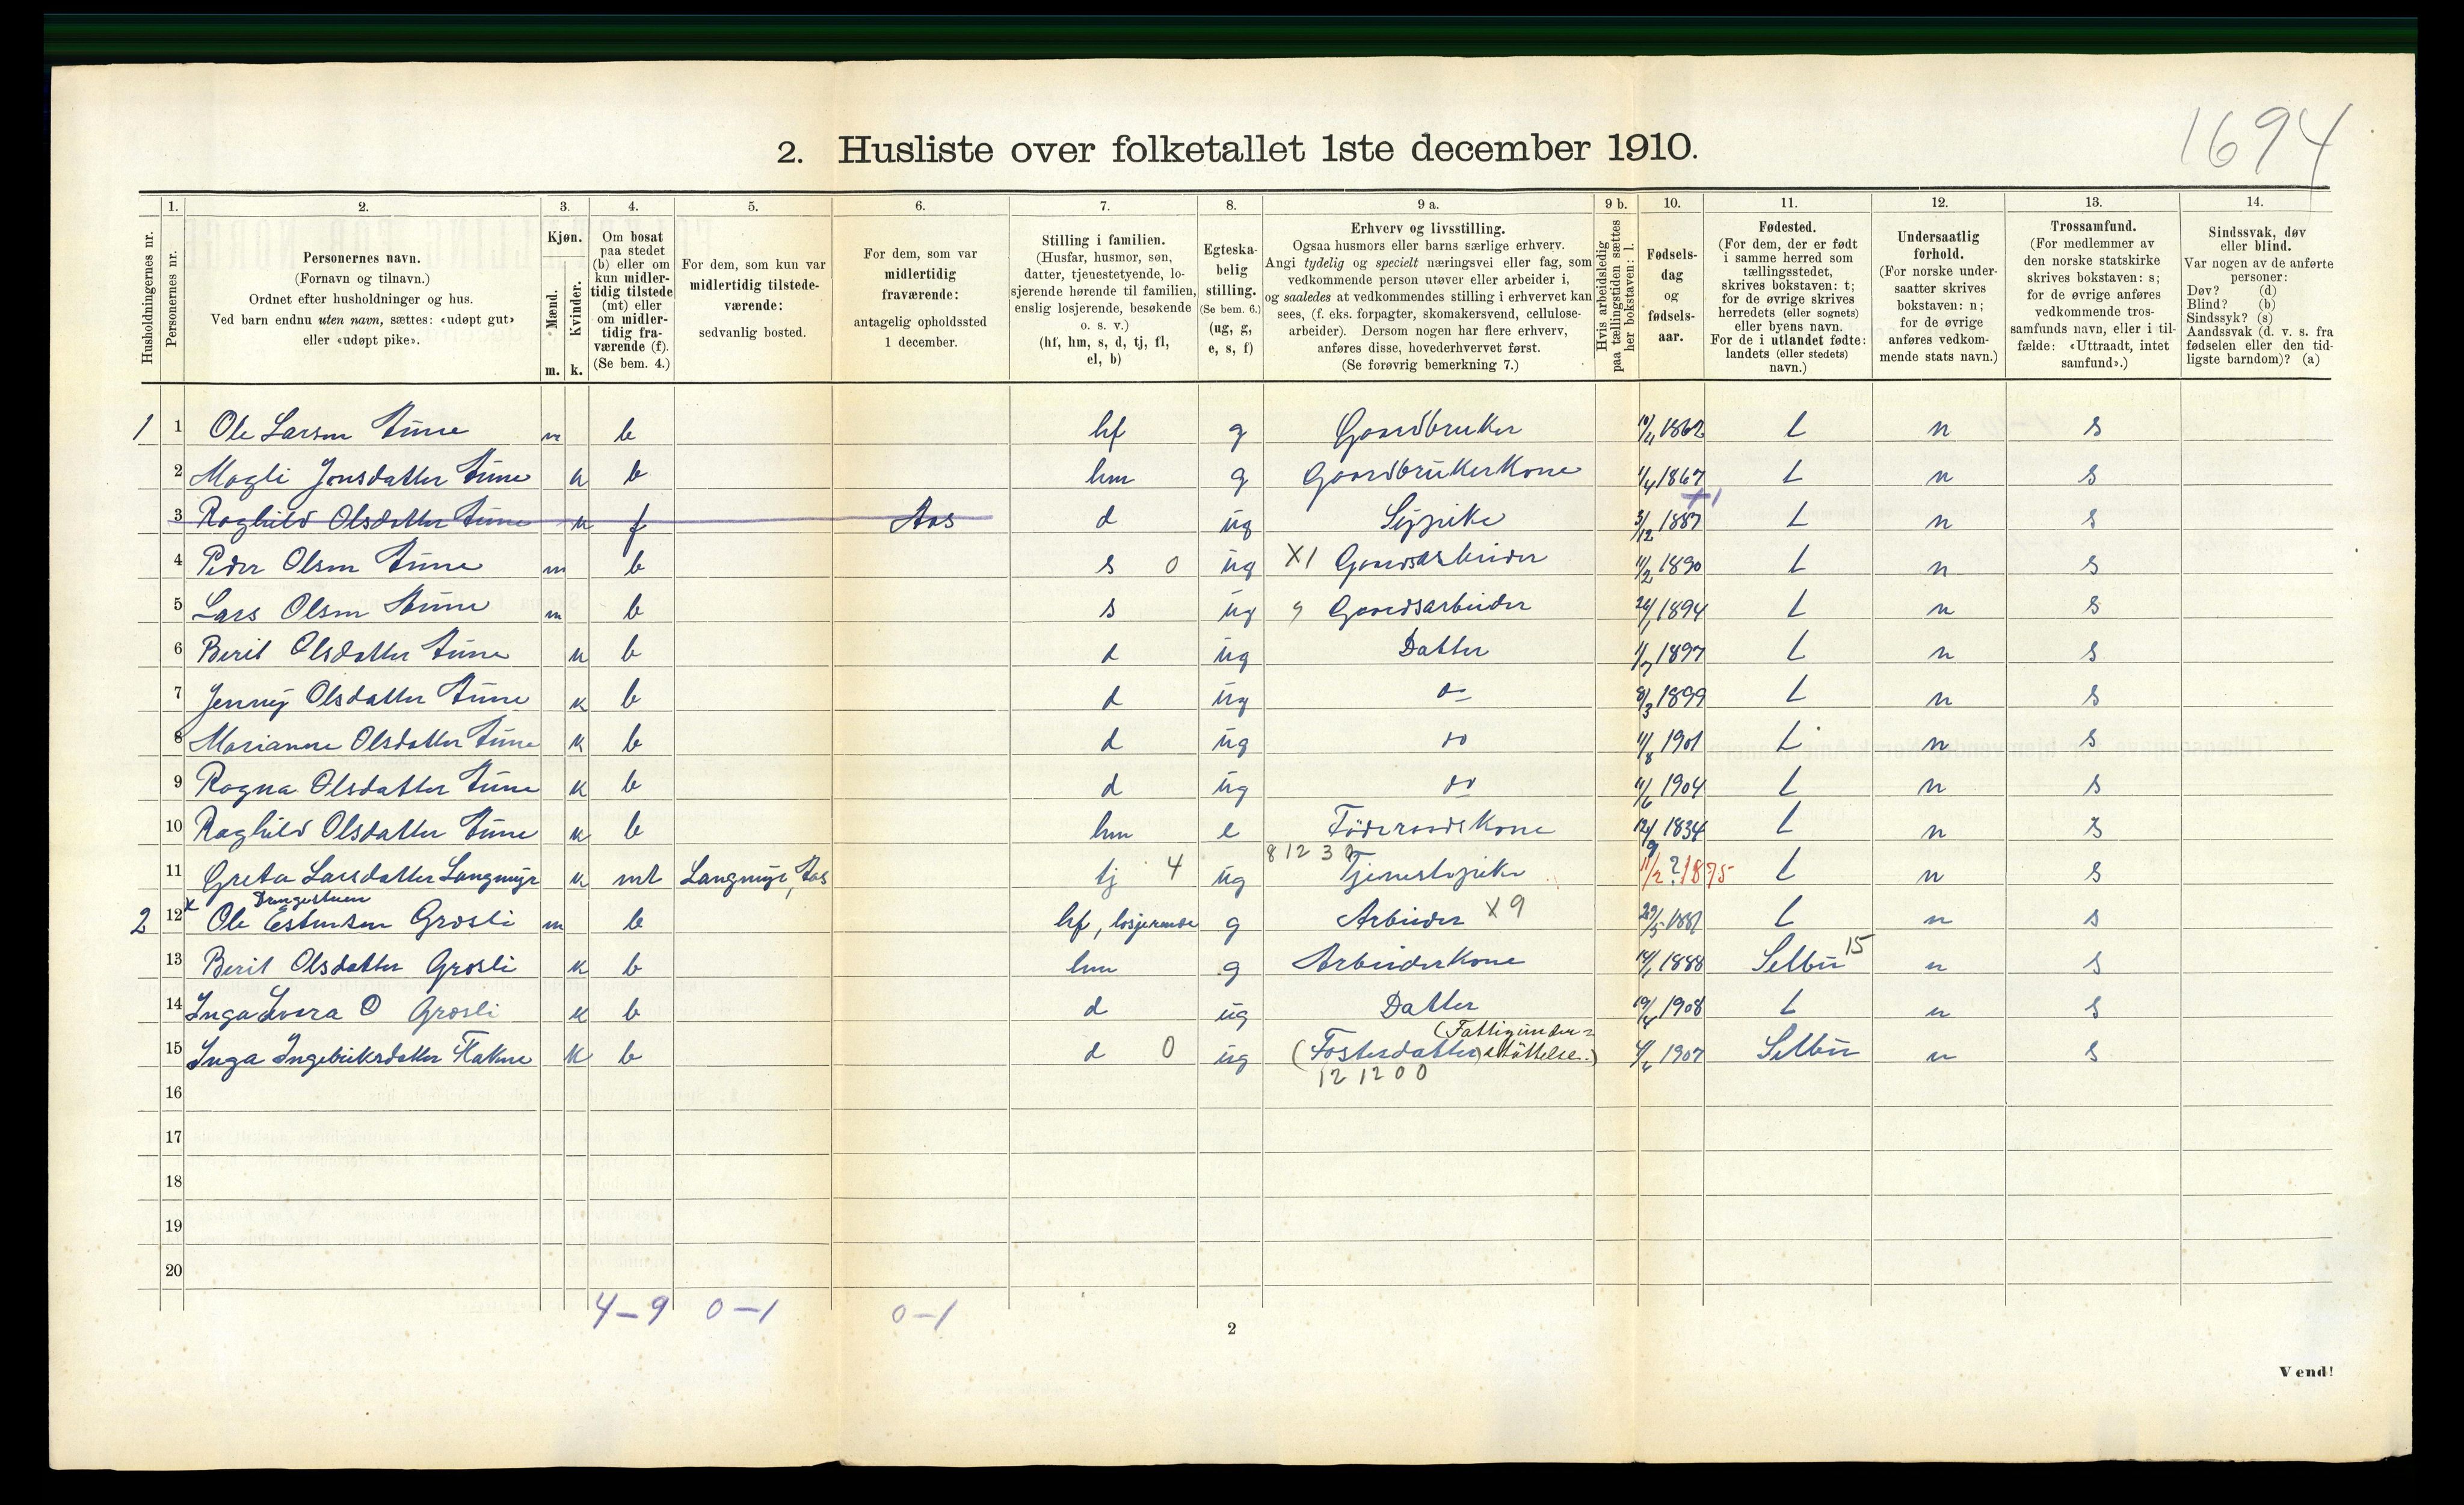 1694
2. Husliste over folketallet 1ste december 1910.
1. 2. 3. 4. 5. 6. 7. 8. 9 a. 9 b. 10. 11. 12. 13. 14.
Husholdningernes nr.
Personernes nr.
Personernes navn.
(Fornavn og tilnavn.)
Ordnet efter husholdninger og hus.
Ved barn endnu uten navn, sættes: «udøpt gut»
eller «udøpt pike».
Kjøn.
Mænd.
Kvinder.
m. k.
Om bosat
paa stedet
(b) eller om
kun midler-
tidig tilstede
(mt) eller
om midler-
tidig fra-
værende (f).
(Se bem. 4.)
For dem, som kun var
midlertidig tilstede-
værende:
sedvanlig bosted.
For dem, som var
midlertidig
fraværende:
antagelig opholdssted
1 december.
Stilling i familien.
(Husfar, husmor, søn,
datter, tjenestetyende, lo-
sjerende hørende til familien,
enslig losjerende, besøkende
o. s. v.)
(hf, hm, s, d, tj, fl,
el, b)
Egteska-
belig
stilling.
(Se bem. 6.)
(ug, g,
e, s, f)
Erhverv og livsstilling.
Ogsaa husmors eller barns særlige erhverv.
Angi tydelig og specielt næringsvei eller fag, som
vedkommende person utøver eller arbeider i,
og saaledes at vedkommendes stilling i erhvervet kan
sees, (f. eks. forpagter, skomakersvend, cellulose-
arbeider). Dersom nogen har flere erhverv,
anføres disse, hovederhvervet først.
(Se forøvrig bemerkning 7.)
Hvis arbeidsledig
paa tællingstiden sættes
her bokstaven: l.
Fødsels-
dag
og
fødsels-
aar.
Fødested.
(For dem, der er født
i samme herred som
tællingsstedet,
skrives bokstaven: t;
for de øvrige skrives
herredets (eller sognets)
eller byens navn.
For de i utlandet fødte:
landets (eller stedets)
navn.)
Undersaatlig
forhold.
(For norske under-
saatter skrives
bokstaven: n;
for de øvrige
anføres vedkom-
mende stats navn.)
Trossamfund.
(For medlemmer av
den norske statskirke
skrives bokstaven: s;
for de øvrige anføres
vedkommende tros-
samfunds navn, eller i til-
fælde: «Uttraadt, intet
samfund».)
Sindssvak, døv
eller blind.
Var nogen av de anførte
personer:
Døv? (d)
Blind? (b)
Sindssyk? (s)
Aandssvak (d. v. s. fra
fødselen eller den tid-
ligste barndom)? (a)
1 1 Ole Larsen Aune m b hf g Gaardbruker 1862 t n s
2 Magli Jonsdatter Aune k b hm g Gaardbrukerkone 1/4 1867 t n s
3 Raghild Olsdatter Aune k f Aas d ug Sypike 3/12 1887 t n s
4 Peder Olsen Aune m b s 0 ug X1 Gaardsarbeider 11/2 1890 t n s
5 Lars Olsen Aune m b s ug Gaardsarbeider 26/1 1894 t n s
6 Beril Olsdatter Aune k b d ug Datter 1/7 1897 t n s
7 Jenny Olsdatter Aune k b d ug do 8/3 1899 t n s
8 Marianne Olsdatter Aune k b d ug do 11/8 1901 t n s
9 Ragna Olsdatter Aune k b d ug do 11/6 1904 t n s
10 Raghild Olsdatter Aune k b hm e Föderaadskone 12/9 1834 t n s
8 12 3
11 Greta Larsdatter Langmyr k mt Langmyr, Aas tj 4 ug Tjenestepike 11/2 ? 1895 t n s
2 12 Ole Estensen Grøsli m b hf, losjerende g Arbeider X9 29/5 1881 t n s
13 Beril Olsdatter Grøsli k b hm g Arbeiderkone 1888 Selbu 15 n s
14 Inga Lovra O Grøsli k b d ug Datter 19/4 1908 t n s
(Fattigunder=
15 Inga Ingebrigtsdatter Flakne k b d 0 ug (Fosterdatter) støttelse.) 1907 Selbu n s
12 12 0 0
16
17
18
19
20
4-9 0-1 0-1
2
Vend!